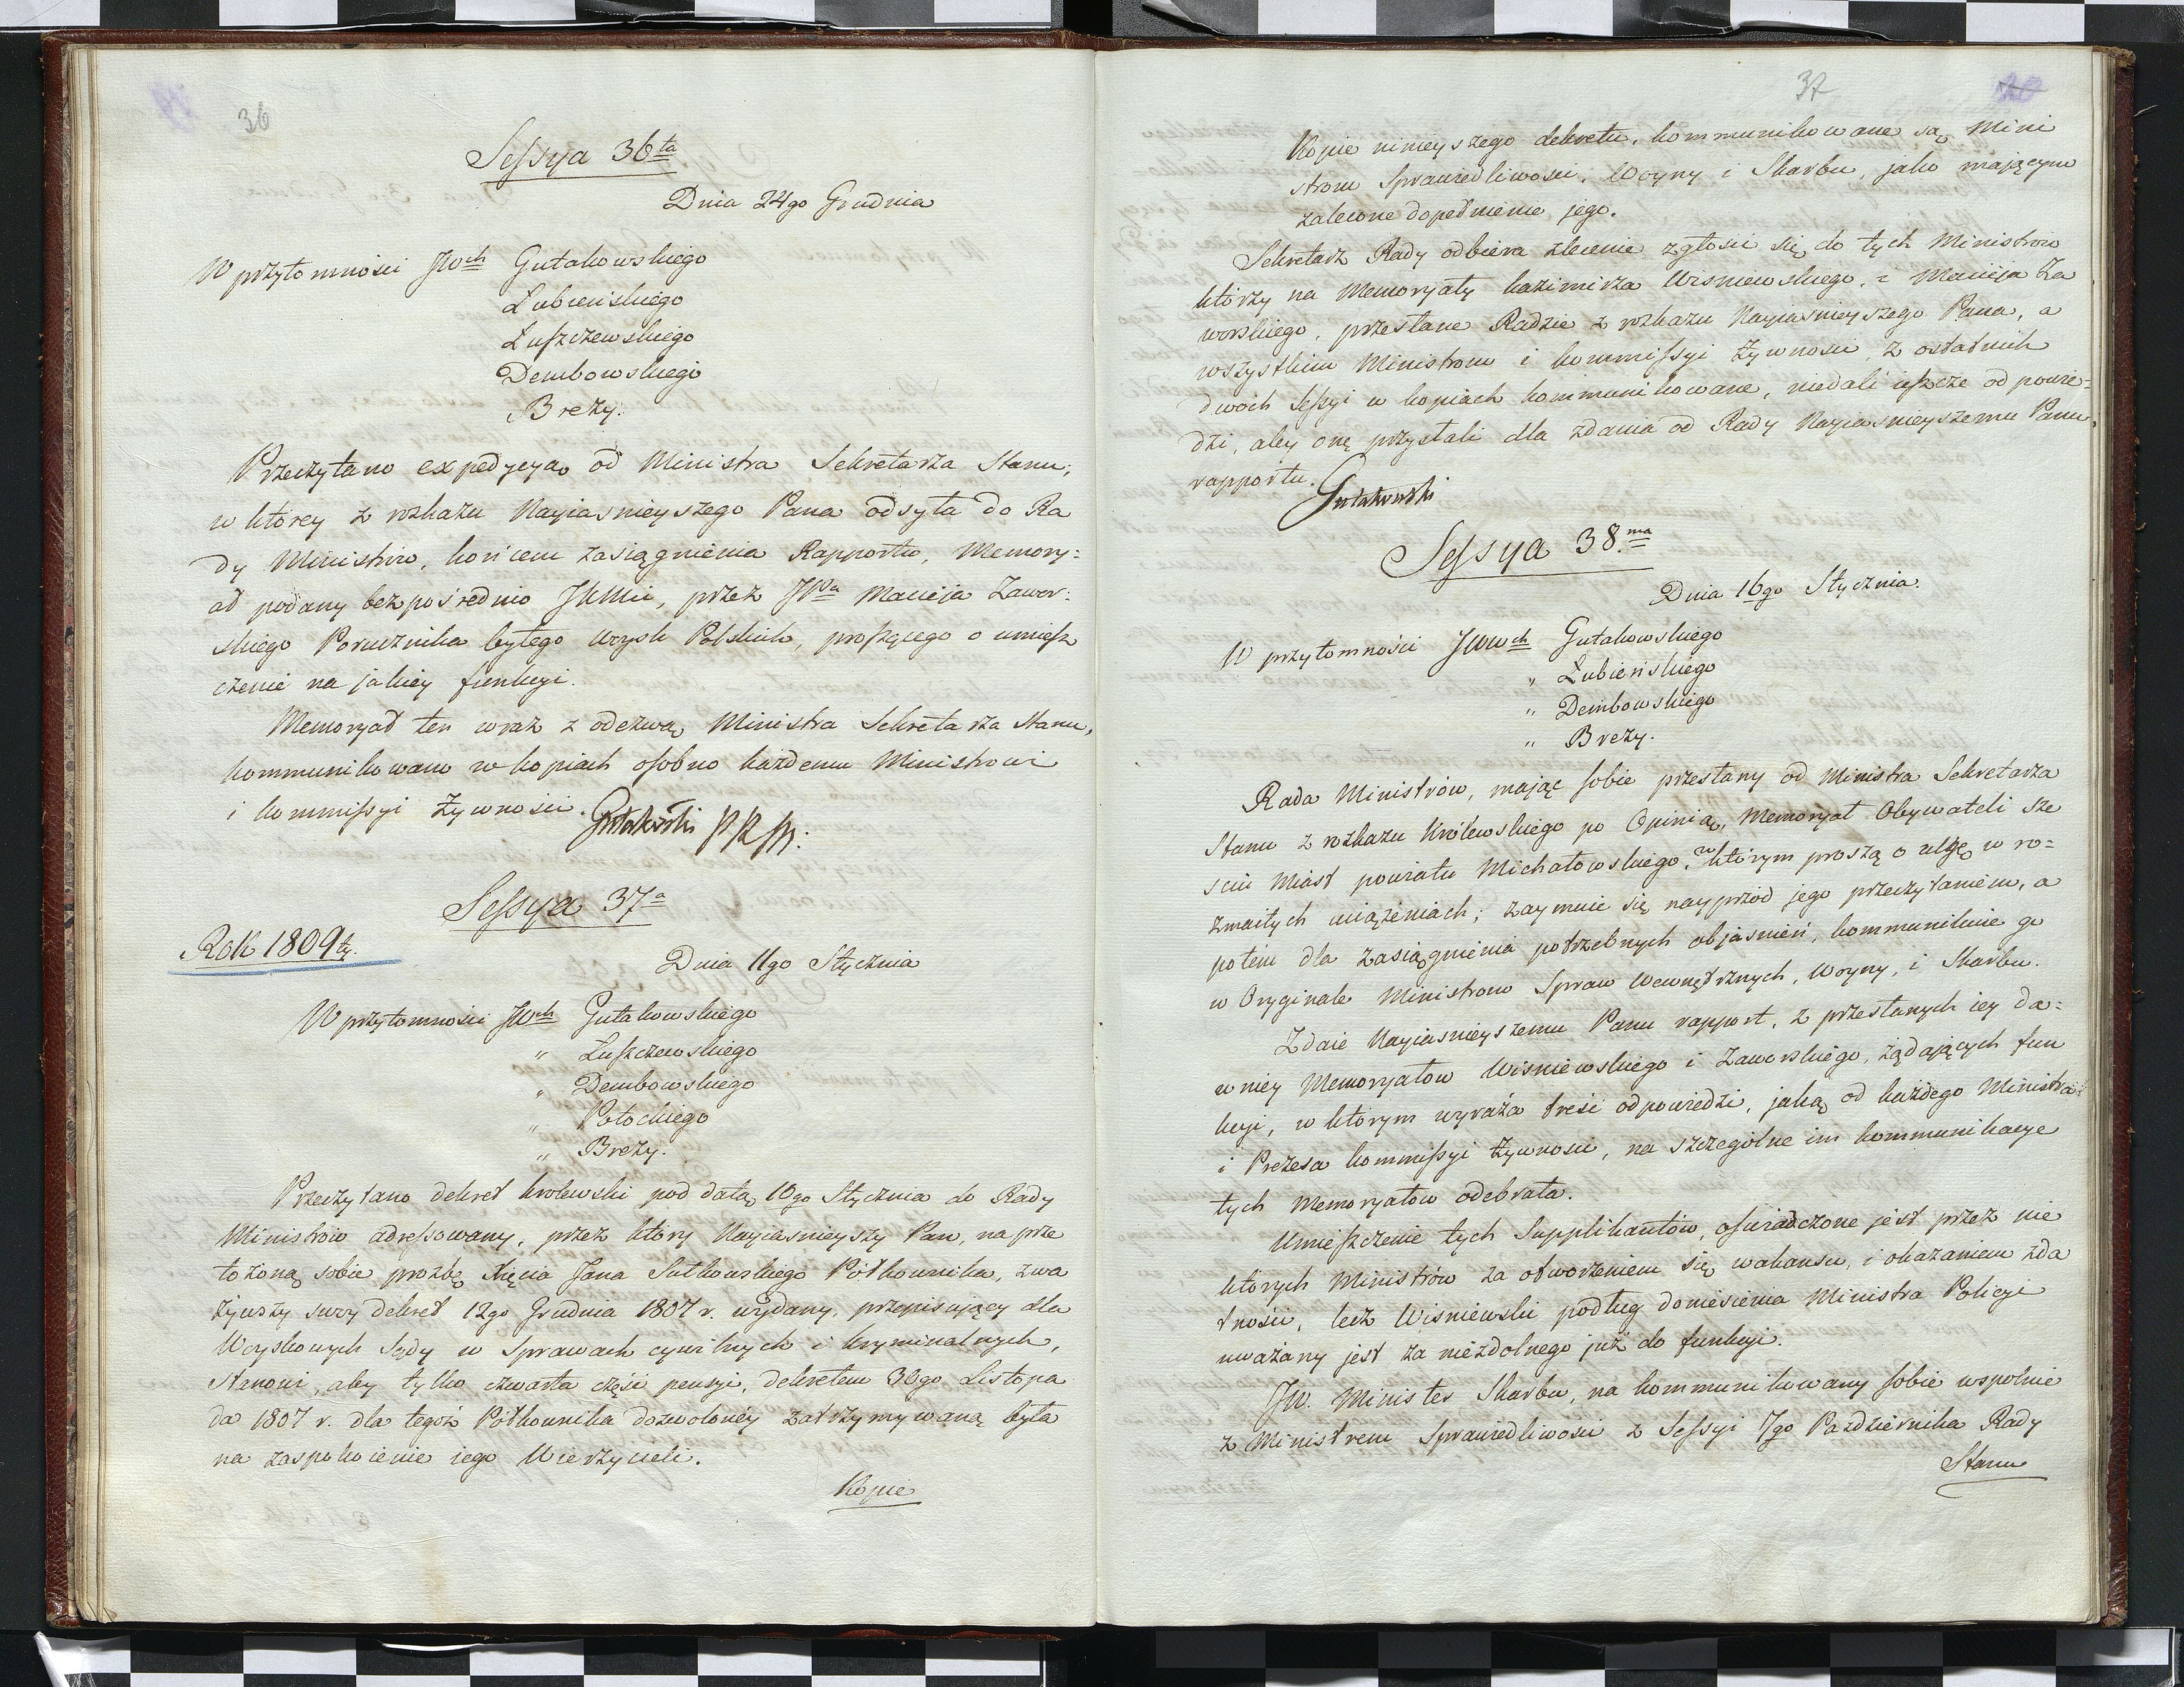 36
Sessya 36ta
Dnia 24go Grudnia
W przytomności JWch Gutakowskiego
Lubieńskiego
Łuszczewskiego
Dembowskiego
Brezy.
Przeczytano expedycyą od Ministra Sekretarza Stanu,
w którey z rozkazu Nayiasnieyszego Pana odsyła do Ra
dy Ministrów, końcem zasiągnienia Rapportu, Memory=
ał podany bezpośrednio JKMci, przez JPa Macieja Zawor=
skiego Porucznika byłego Woysk Polskich, proszącego o umiesz
czenie na jakiey funkcyi.
Memoryał ten wraz z odezwą Ministra Sekretarza Stanu,
kommunikowano w kopiach osobno każdemu Ministrowi
i Kommissyi Żywności. Gutakowski PRM.
Sessya 37a
Rok 1809ty.
Dnia 11go Stycznia
W przytomności JWch Gutakowskiego
" Łuszczewskiego
" Dembowskiego
" Potockiego
" Brezy.
Przeczytano dekret krolewski pod datą 10go Stycznia do Rady
Ministrów adressowany, przez który Nayiasnieyszy Pan, na prze
łożoną sobie prozbę Xięcia Jana Sułkowskiego Półkownika, zwa
żywszy swóy dekret 12go Grudnia 1807 r. wydany, przepisujący dla
Woyskowych Sądy w Sprawach cywilnych i kryminalnych,
Stanowi, aby tylko czwarta część pensyi, dekretem 30go Listopa
da 1807 r. dla tegoż Półkownika dozwoloney zatrzymywaną była
na zaspokoienie iego Wierzycieli.
Kopie
37
Kopie ninieyszego dekretu, kommunikowane są Mini
strom Sprawiedliwości, Woyny i Skarbu, jako mającym
zalecone dopełnienie jego.
Sekretarz Rady odbiera zlecenie zgłosić się do tych Ministrów
którzy na Memoryały Kazimirza Wisniewskiego, i Macieja Za
worskiego, przesłane Radzie z rozkazu Nayiasnieyszego Pana, a
wszystkim Ministrom i Kommissyi Żywności, z ostatnich
dwoch Sessyi w kopiach kommunikowane, niedali ieszcze odpowie=
dzi, aby onę przysłali dla zdania od Rady Nayiasnieyszemu Panu,
rapportu. Gutakowski
Sessya 38.ma
Dnia 16go Stycznia.
W przytomności JWWch Gutakowskiego
" Łubieńskiego
" Dembowskiego
" Brezy.
Rada Ministrów, mając sobie przesłany od Ministra Sekretarza
Stanu z rozkazu Królewskiego po Opinią, Memoryał Obywateli sze
sciu Miast powiatu Michałowskiego, w którym proszą o ulgę w ro=
zmaitych uciążeniach; zaymuie się nayprzod jego przeczytaniem, a
potem dla zasiągnienia potrzebnych objasnień, kommunikuie go
w Oryginale Ministrom Spraw Wewnętrznych, Woyny, i Skarbu.
Zdaie Nayiasnieyszemu Panu rapport, z przesłanych iey da=
wniey Memoryałow Wisniewskiego i Zaworskiego, żądających fun
kcyi, w którym wyraża treść odpowiedzi, jaką od każdego Ministra
i Prezesa Kommissyi Żywnosci, na szczególne im kommunikacye
tych Memoryałow odebrała.
Umieszczenie tych Supplikantów, oswiadczone jest przez nie
których Ministrów za otworzeniem się wakansu, i okazaniem zda
tności, lecz Wisniewski podług doniesienia Ministra Policyi
uważany jest za niezdolnego już do funkcyi.
JW. Minister Skarbu, na kommunikowany sobie wspolnie
z Ministrem Sprawiedliwości z Sessyi 7go Października Rady
Stanu